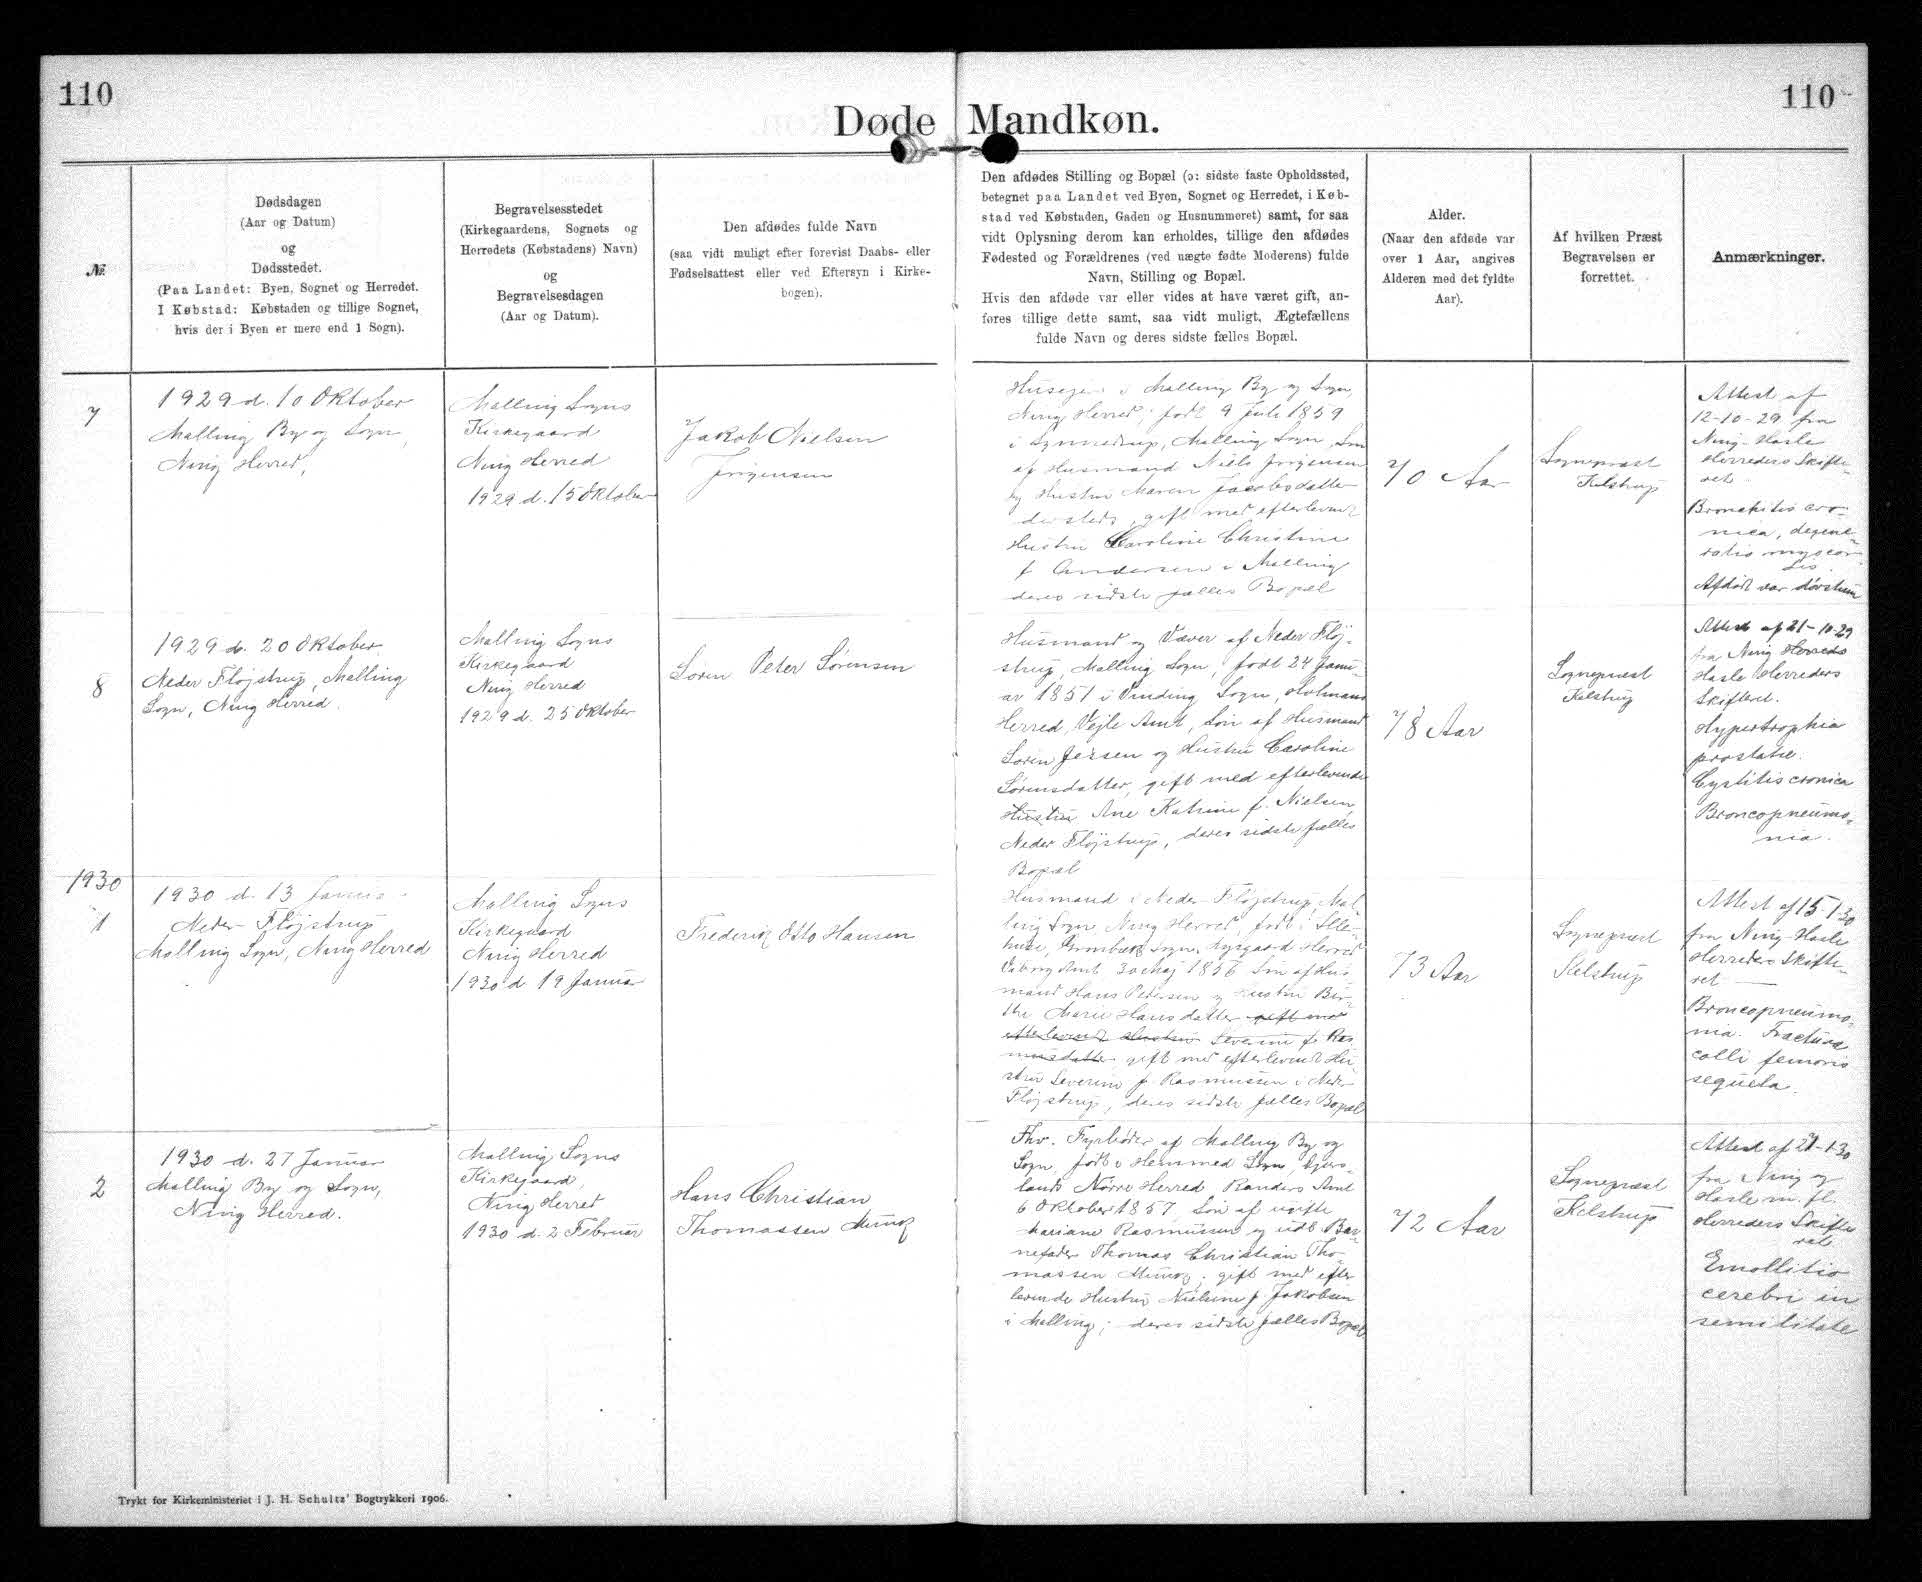 110
110
Døde Mandkøn.
№
Dødsdagen
(Aar og Datum)
og
Dødsstedet.
(Paa Landet: Byen, Sognet og Herredet.
I Købstad: Købstaden og tillige Sognet,
hvis der i Byen er mere end 1 Sogn).
Begravelsesstedet
(Kirkegaardens, Sognets og
Herredets (Købstadens) Navn)
og
Begravelsesdagen
(Aar og Datum).
Den afdødes fulde Navn
(saa vidt muligt efter forevist Daabs- eller
Fødselsattest eller ved Eftersyn i Kirke-
bogen).
Den afdødes Stilling og Bopæl (ɔ: sidste faste Opholdssted,
betegnet paa Landet ved Byen, Sognet og Herredet, i Køb-
stad ved Købstaden, Gaden og Husnummeret) samt, for saa
vidt Oplysning derom kan erholdes, tillige den afdødes
Fødested og Forældrenes (ved uægte fødte Moderens) fulde
Navn, Stilling og Bopæl.
Hvis den afdøde var eller vides at have været gift, an-
føres tillige dette samt, saa vidt muligt, Ægtefællens
fulde Navn og deres sidste fælles Bopæl.
Alder.
(Naar den afdøde var
over 1 Aar, angives
Alderen med det fyldte
Aar).
Af hvilken Præst
Begravelsen er
forrettet.
Anmærkninger.
7
1929 d. 10 Oktober
Malling By og Sogn,
Ning Herred,
Malling Sogns
Kirkegaard
Ning Herred
1929 d. 15 Oktober
Jakob Nielsen
Jørgensen
Husejer i Malling By og Sogn,
Ning Herred, født 9 Juli 1859
i Synnedrup, Malling Sogn, Søn
af Husmand Niels Jørgensen
og Hustru Maren Jacobsdatter
dersteds, gift med efterlevende
Hustru Caroline Christine
f. Andersen i Malling
deres sidste fælles Bopæl
70 Aar
Sognepræst
Kelstrup
Attest af
12-10-29 fra
Ning-Hasle
Herreders Skifte-
ret
Bronchitis cro-
nica, degene-
ratio myocar-
dis
Afdøde var døvstum
8
1929 d. 20 Oktober
Neder Fløjstrup, Malling
Sogn, Ning Herred.
Malling Sogns
Kirkegaard
Ning Herred
1929 d. 25 Oktober
Søren Peter Sørensen
Husmand og Væver af Neder Fløj-
strup, Malling Sogn, født 24 Janu-
ar 1851 i Vinding Sogn, Holmans
Herred, Vejle Amt, Søn af Husmand
Søren Jensen og Hustru Caroline
Sørensdatter, gift med efterlevende
Hustru Ane Katrine f. Nielsen,
Neder Fløjstrup, deres sidste fælles
Bopæl
78 Aar
Sognepræst
Kelstrup
Attest af 21-10-29
fra Ning Herreds
Hasle Herreders
Skifteret.
Hypertrophia
prostatae.
Cystitis cronica
Broncopneumo-
nia.
1930
1
1930 d. 13 Januar
Neder Fløjstrup
Malling Sogn, Ning Herred
Malling Sogns
Kirkegaard
Ning Herred
1930 d. 19 Januar
Frederik Otto Hansen
Husmand i Neder Fløjstrup, Mal-
ling Sogn, Ning Herred, født i
Grønbæk Sogn, Lysgaard Herred
Viborg Amt 30 Maj 1856 Søn af Hus-
mand Hans Petersen og Hustru Bir-
the Marie Hansdatter gift med
efterlevende Hustru Severine f. Ras-
musdatter gift med efterlevende Hu-
stru Severine f. Rasmussen i Neder
Fløjstrup, deres sidste fælles Bopæl
73 Aar
Sognepræst
Kelstrup
Attest af 15-1-30
fra Ning-Hasle
Herreders Skifte-
ret
Broncopneumo-
nia. Fractura
colli femoris
sequela.
2
1930 d. 27 Januar
Malling By og Sogn,
Ning Herred.
Malling Sogns
Kirkegaard,
Ning Herred
1930 d. 2 Februar
Hans Christian
Thomassen Munk
Fhv. Fyrbøder af Malling By og
Sogn, født i Hemmed Sogn, Djurs-
lands Nørre Herred Randers Amt
6 Oktober 1857, Søn af ugifte
Mariane Rasmussen og udl. Bar-
nefader Thomas Christian Tho-
massen Munk, gift med efter-
levende Hustru Nielsine f. Jakobsen
i Malling; deres sidste fælles Bopæl
72 Aar
Sognepræst
Kelstrup
Attest af 29-1-30
fra Ning og
Hasle m. fl.
Herreders Skifte
ret
Emollitio
cerebri en
senilitate
Trykt for Kirkeministeriet i J. H. Schultz' Bogtrykkeri 1906.